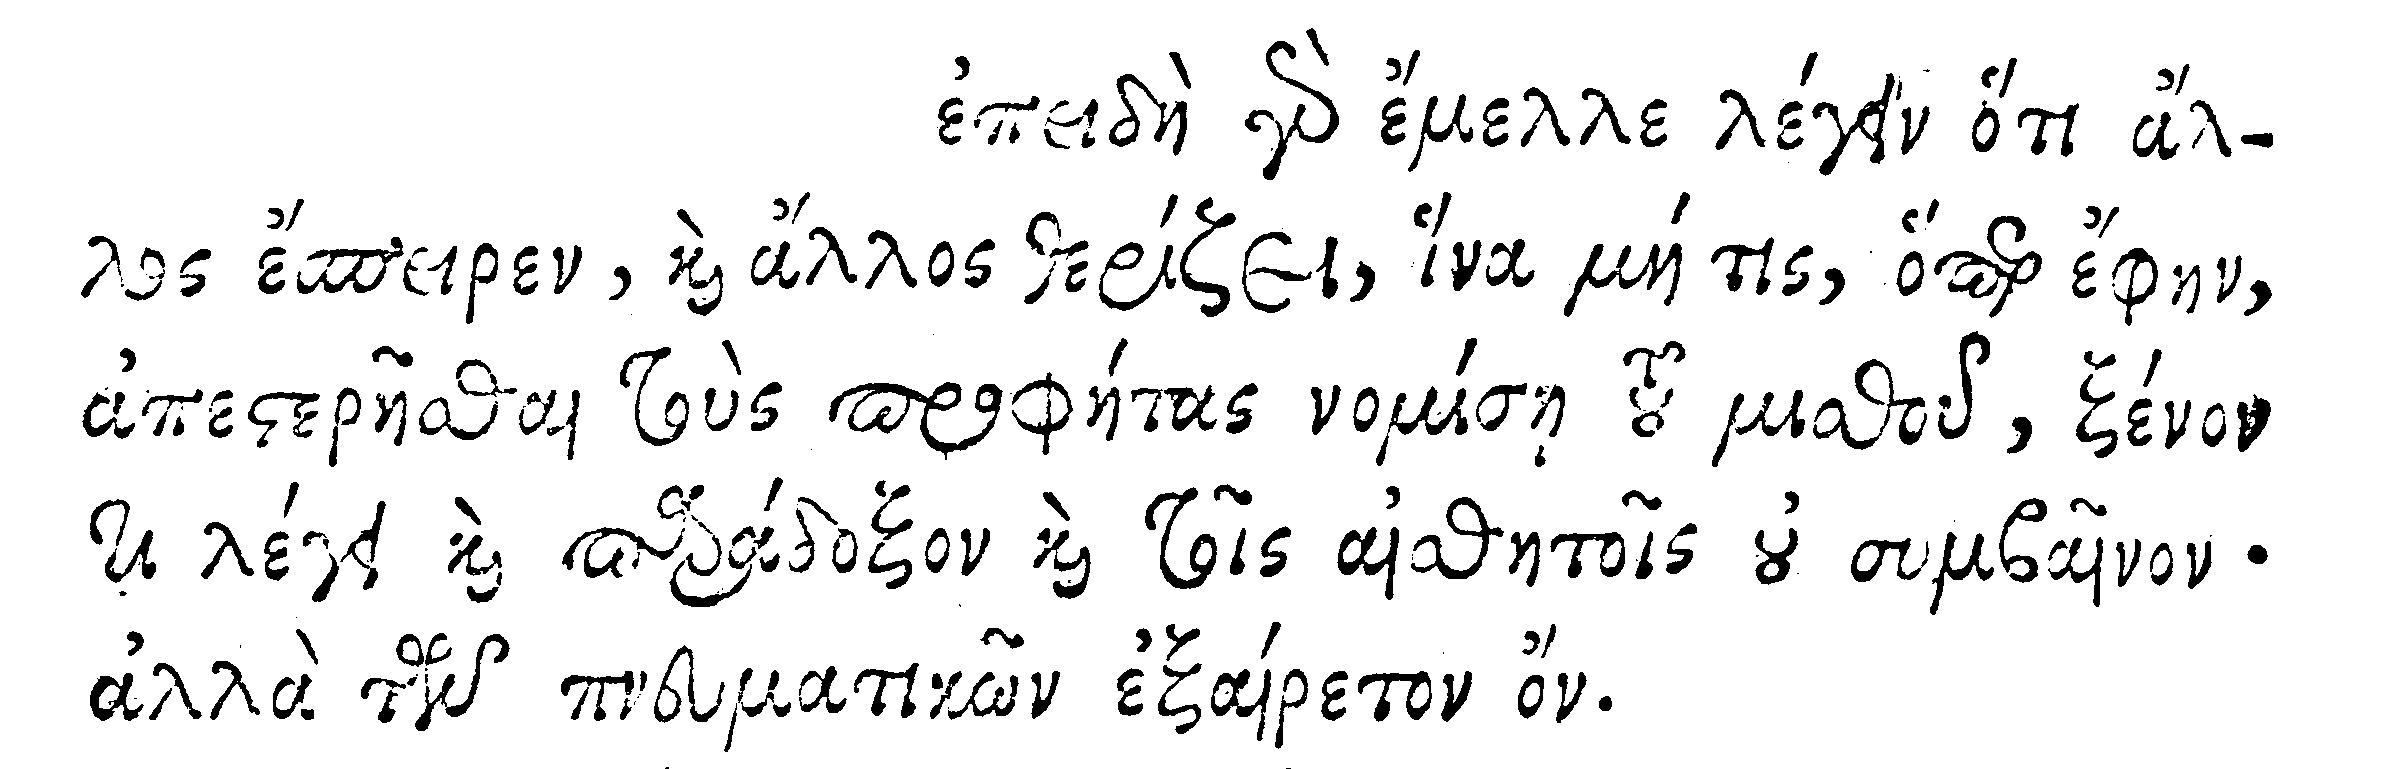 ἐπειδὴ γὰρ ἔμελλε λέγειν ὅτι ἄλ-
λος ἔσπειρεν, καὶ ἄλλος θερίζει, ἵνα μή τις, ὅπερ ἔφην,
ἀπεστερῆσθαι τοὺς προφήτας νομίσῃ τοῦ μισθοῦ, ξένον
τι λέγει καὶ παράδοξον καὶ τοῖς αἰσθητοῖς οὐ συμβαῖνον·
ἀλλὰ τῶν πνευματικῶν ἐξαίρετον ὄν.